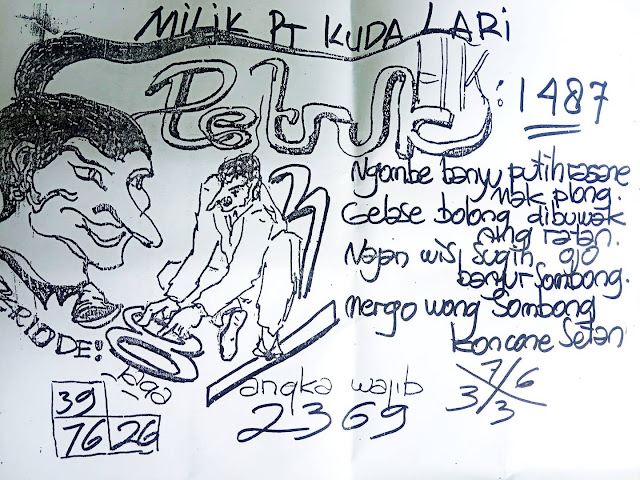 MILIK PT KUDA LARI
HK: 1487
Ngombe banyu putih rasane
mak plong.
Gelase bolong dibuwak
ning ratan.
Najan wis sugih ojo
banjur sombong.
Mergo wong sombong
koncone setan
PERIODE!
Jaga
39
76 26
angka wajib
2369
7/6
3/3